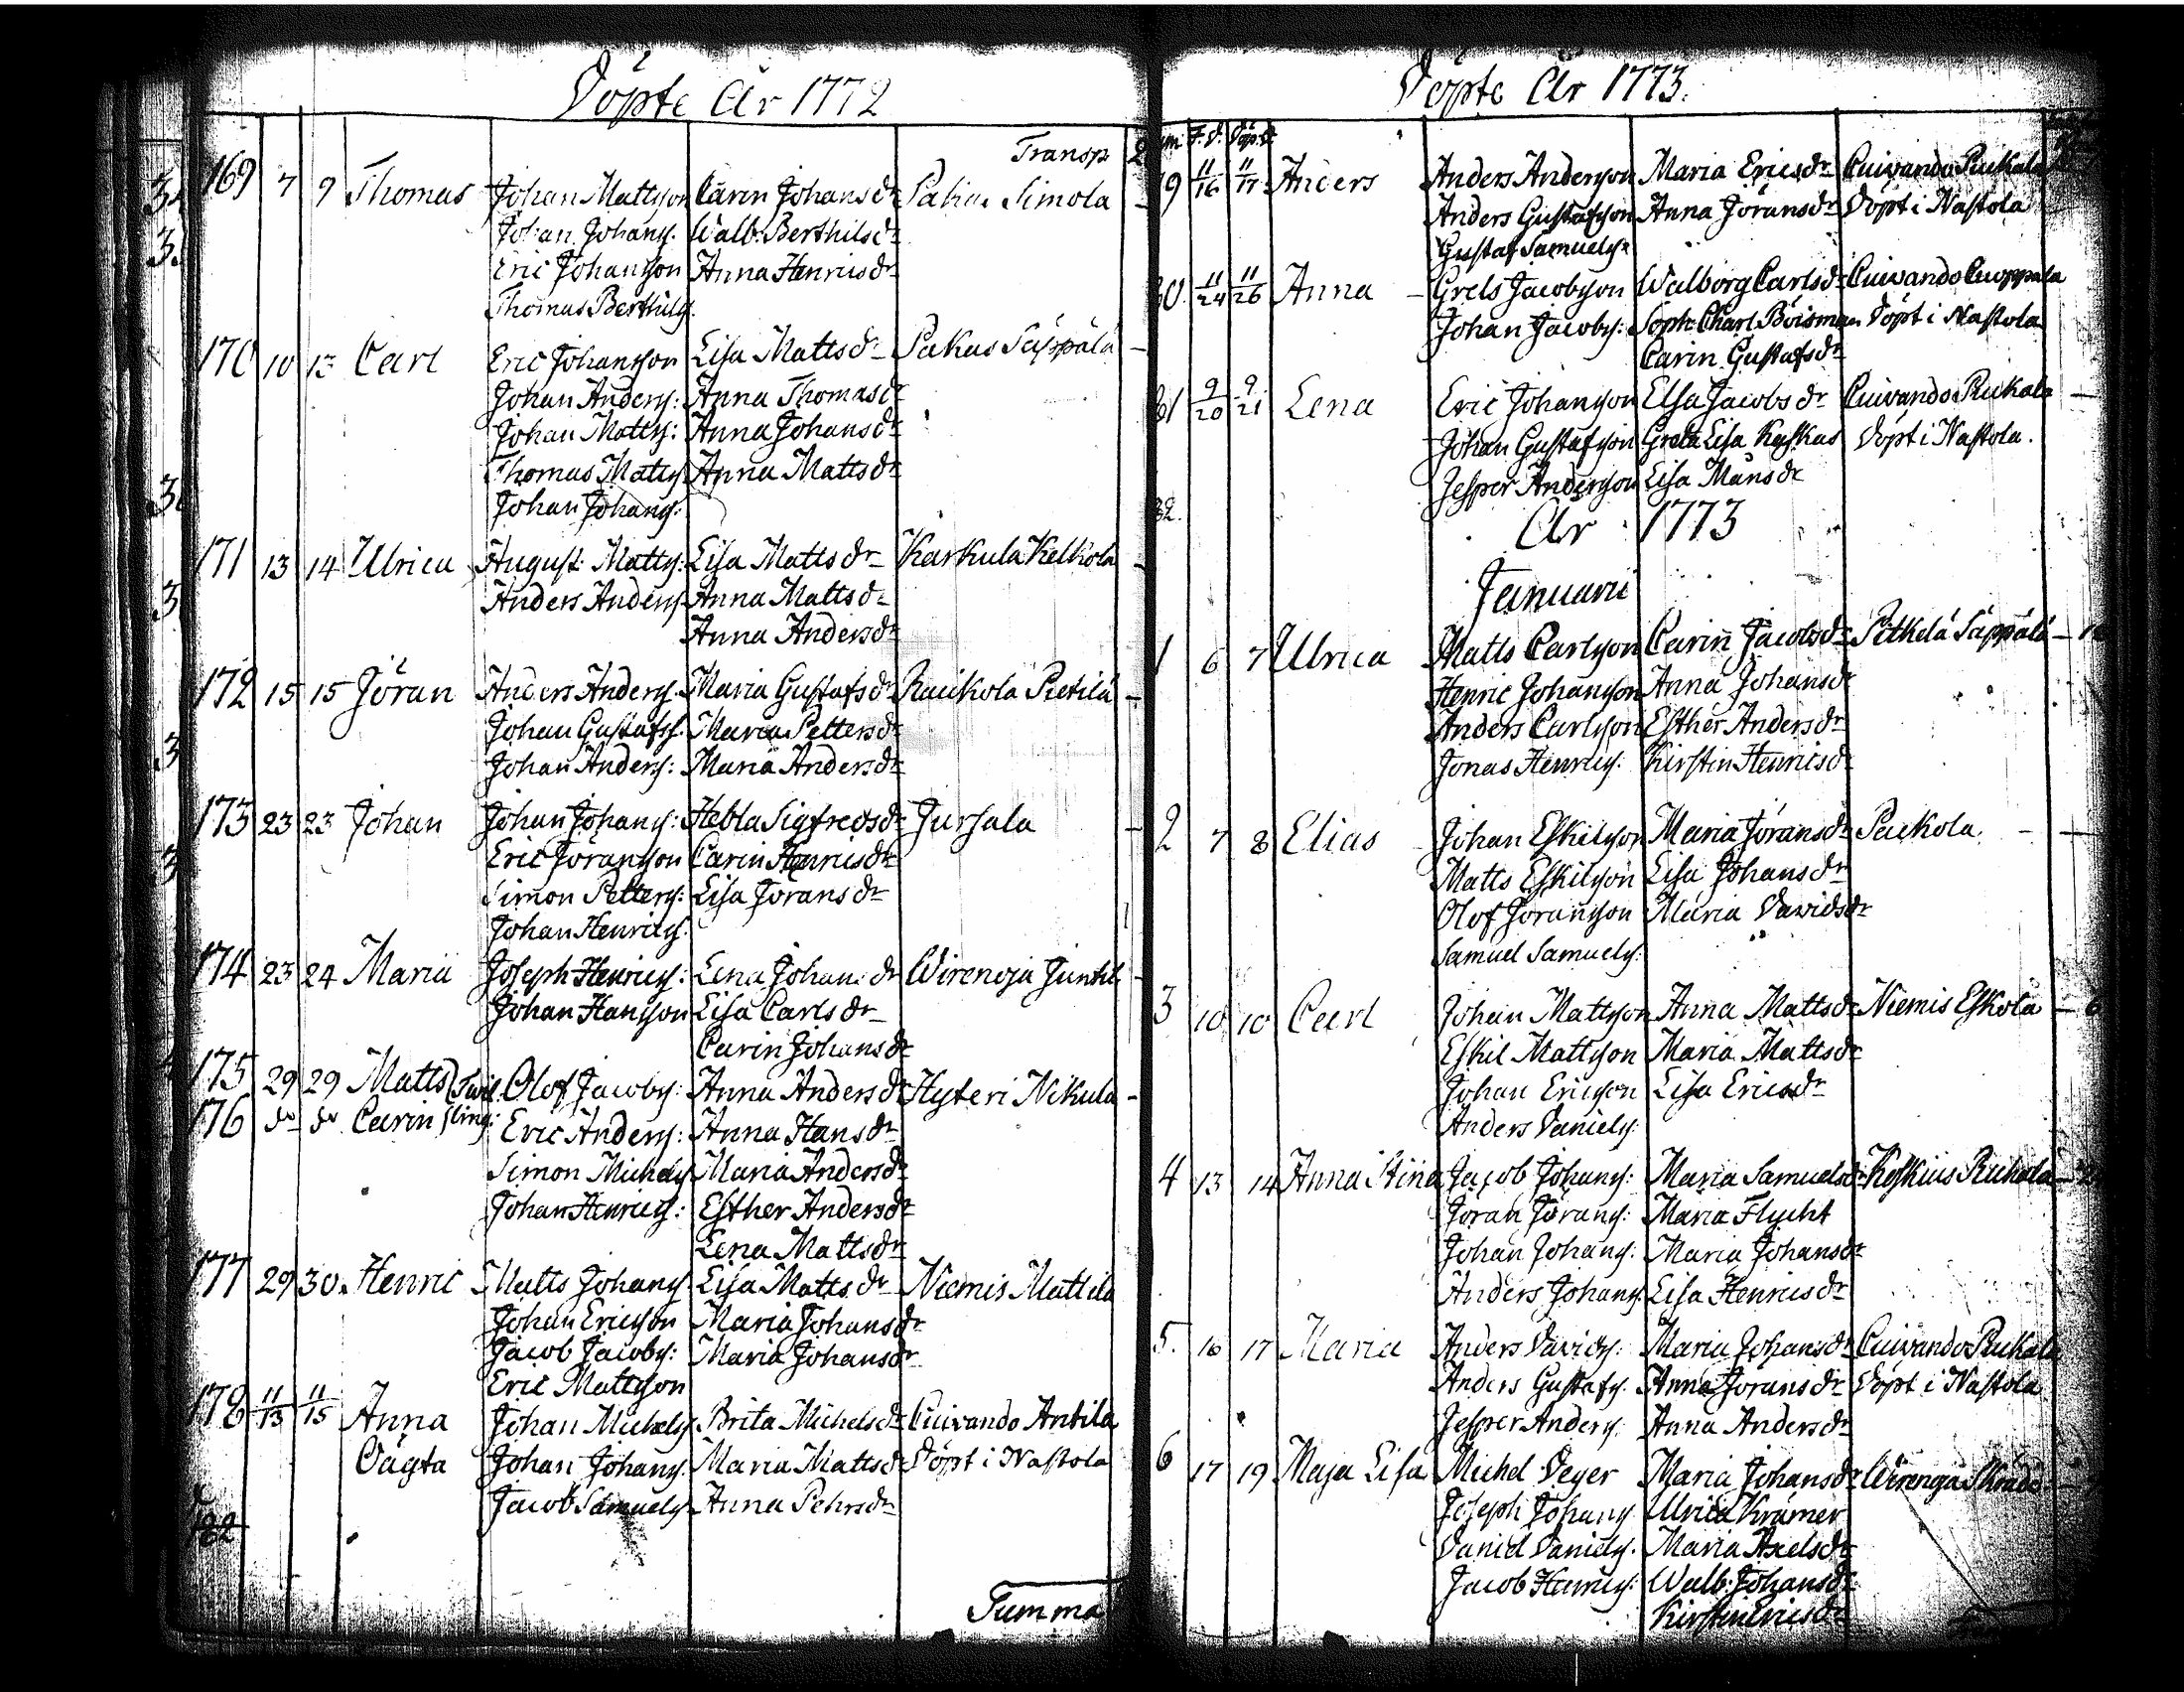 Döpte År 1772
Transp
169 7 9 Thomas Johan Mattsson Carin Johansdr Pakas Simola
Johan Johans: Walb: Berthilsdr
Eric Johansson Anna Henricsdr
Thomas Berthils:
170 10 13 Carl Eric Johansson Lisa Mattsdr Pakas Säppälä
Johan Anders: Anna Thomasdr
Johan Matts: Anna Johansdr
Thomas Matts: Anna Mattsdr
Johan Johans:
171 13 14 Ulrica August Matts: Lisa Mattsdr Karkula Kellkola
Anders Anders: Anna Mattsdr
Anna Andersdr
172 15 15 Jöran Anders Anders: Maria Gustafsdr Raikola Pietilä
Johan Gustafs: Maria Pettersdr
Johan Anders: Maria Andersdr
173 23 23 Johan Johan Johans: Hebla Sigfredsdr Jursala
Eric Jöransson Carin Henricsdr
Simon Petters: Lisa Jöransdr
Johan Henrics:
174 23 24 Maria Joseph Henrics: Lena Johansdr Wirenoja Juntil
Johan Hansson Lisa Carlsdr
Carin Johansdr
175 29 29 Matts (Twil Olof Jacobs: Anna Andersdr Hyteri Nikula
176 do do Carin (ling: Eric Anders: Anna Hansdr
Simon Michels: Maria Andersdr
Johan Henrics: Esther Andersdr
Lena Mattsdr
177 29 30 Henric Matts Johans: Lisa Mattsdr Niemis Mattila
Johan Ericsson Maria Johansdr
Jacob Jacobs: Maria Johansdr
Eric Mattsson
178 11/13 11/15 Anna Johan Michels: Brita Michelsdr Cuivando Antila
Oägta Johan Johans: Maria Mattsdr Döpt i Nastola
Jacob Samuels: Anna Pehrsdr
Summa
Döpte År 1773.
11/16 11/17 Anders Anders Andersson Maria Ericsdr Cuivando Rukala
Anders Gustafsson Anna Jöransdr Döpt i Nastola
Gustaf Samuels:
11/24 11/26 Anna Grels Jacobsson Walborg Carlsdr Cuivando Cuoppala
Johan Jacobs: Soph: Charl Böisman Döpt i Nastola
Carin Gustafsdr
9/20 9/21 Lena Eric Johansson Elsa Jacobsdr Cuivando Rukala
Johan Gustafsson Greta Lisa Kaskas Döpt i Nastola.
Jesper Andersson Lisa Månsdr
År 1773
Januarii
1 6 7 Ulrica Matts Carlsson Carin Jacobsdr Pitkelä Säppälä
Henric Johansson Anna Johansdr
Anders Carlsson Esther Andersdr
Jonas Henrics: Kirstin Henricsdr
2 7 8 Elias Johan Eskilsson Maria Jöransdr Packola
Matts Eskilsson Lisa Johansdr
Olof Jöransson Maria Davidsdr
Samuel Samuels:
3 10 10 Carl Johan Mattsson Anna Mattsdr Niemis Eskola
Eskil Mattsson Maria Mattsdr
Johan Ericsson Lisa Ericsdr
Anders Daniels:
4 13 14 Anna Stina Jacob Johans: Maria Samuelsdr Koskius Rukala
Jöran Jörans: Maria Flycht
Johan Johans: Maria Johansdr
Anders Johans: Lisa Henricsdr
5. 16 17 Maria Anders Davids: Maria Johansdr Cuivando Rukala
Anders Gustafs: Anna Jöransdr Döpt i Nastola
Jesper Anders: Anna Andersdr
6 17 19 Maja Lisa Michel Deger Maria Johansdr
Joseph Johans: Ulrica Kramer
Daniel Daniels: Maria Axelsdr
Jacob Henrics: Walb: Johansdr
Kirstin Ericsdr